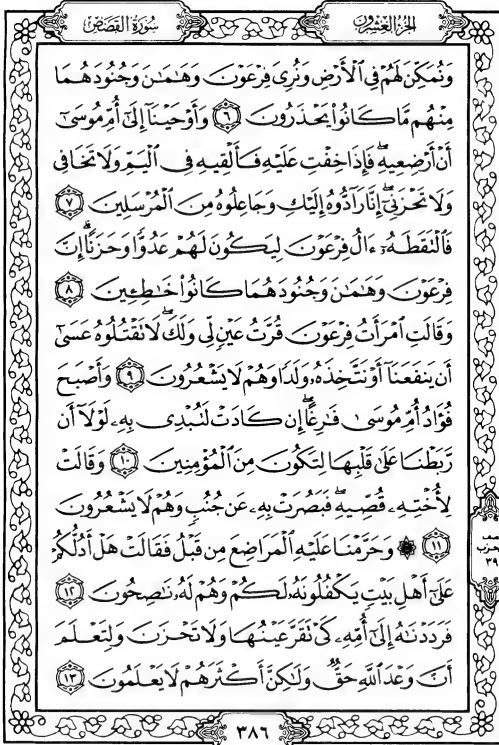 سورة القصص
الجزء العشرون
وَنُمَكِّنَ لَهُمْ فِي الْأَرْضِ وَنُرِيَ فِرْعَوْنَ وَهَامَانَ وَجُنُودَهُمَا
مِنْهُم مَّا كَانُوا يَحْذَرُونَ ٦ وَأَوْحَيْنَا إِلَىٰ أُمِّ مُوسَىٰ
أَنْ أَرْضِعِيهِ ۖ فَإِذَا خِفْتِ عَلَيْهِ فَأَلْقِيهِ فِي الْيَمِّ وَلَا تَخَافِي
وَلَا تَحْزَنِي ۖ إِنَّا رَادُّوهُ إِلَيْكِ وَجَاعِلُوهُ مِنَ الْمُرْسَلِينَ ٧
فَالْتَقَطَهُ ءَالُ فِرْعَوْنَ لِيَكُونَ لَهُمْ عَدُوًّا وَحَزَنًا ۗ إِنَّ
فِرْعَوْنَ وَهَامَانَ وَجُنُودَهُمَا كَانُوا خَاطِئِينَ ٨
وَقَالَتِ امْرَأَتُ فِرْعَوْنَ قُرَّتُ عَيْنٍ لِّي وَلَكَ ۖ لَا تَقْتُلُوهُ عَسَىٰ
أَن يَنفَعَنَا أَوْ نَتَّخِذَهُ وَلَدًا وَهُمْ لَا يَشْعُرُونَ ٩ وَأَصْبَحَ
فُؤَادُ أُمِّ مُوسَىٰ فَارِغًا ۖ إِن كَادَتْ لَتُبْدِي بِهِ لَوْلَا أَن
رَّبَطْنَا عَلَىٰ قَلْبِهَا لِتَكُونَ مِنَ الْمُؤْمِنِينَ ١٠ وَقَالَتْ
لِأُخْتِهِ قُصِّيهِ ۖ فَبَصُرَتْ بِهِ عَن جُنُبٍ وَهُمْ لَا يَشْعُرُونَ
١١ ۞ وَحَرَّمْنَا عَلَيْهِ الْمَرَاضِعَ مِن قَبْلُ فَقَالَتْ هَلْ أَدُلُّكُمْ
عَلَىٰ أَهْلِ بَيْتٍ يَكْفُلُونَهُ لَكُمْ وَهُمْ لَهُ نَاصِحُونَ ١٢
فَرَدَدْنَاهُ إِلَىٰ أُمِّهِ كَيْ تَقَرَّ عَيْنُهَا وَلَا تَحْزَنَ وَلِتَعْلَمَ
أَنَّ وَعْدَ اللَّهِ حَقٌّ وَلَٰكِنَّ أَكْثَرَهُمْ لَا يَعْلَمُونَ ١٣
٣٨٦
٣٩